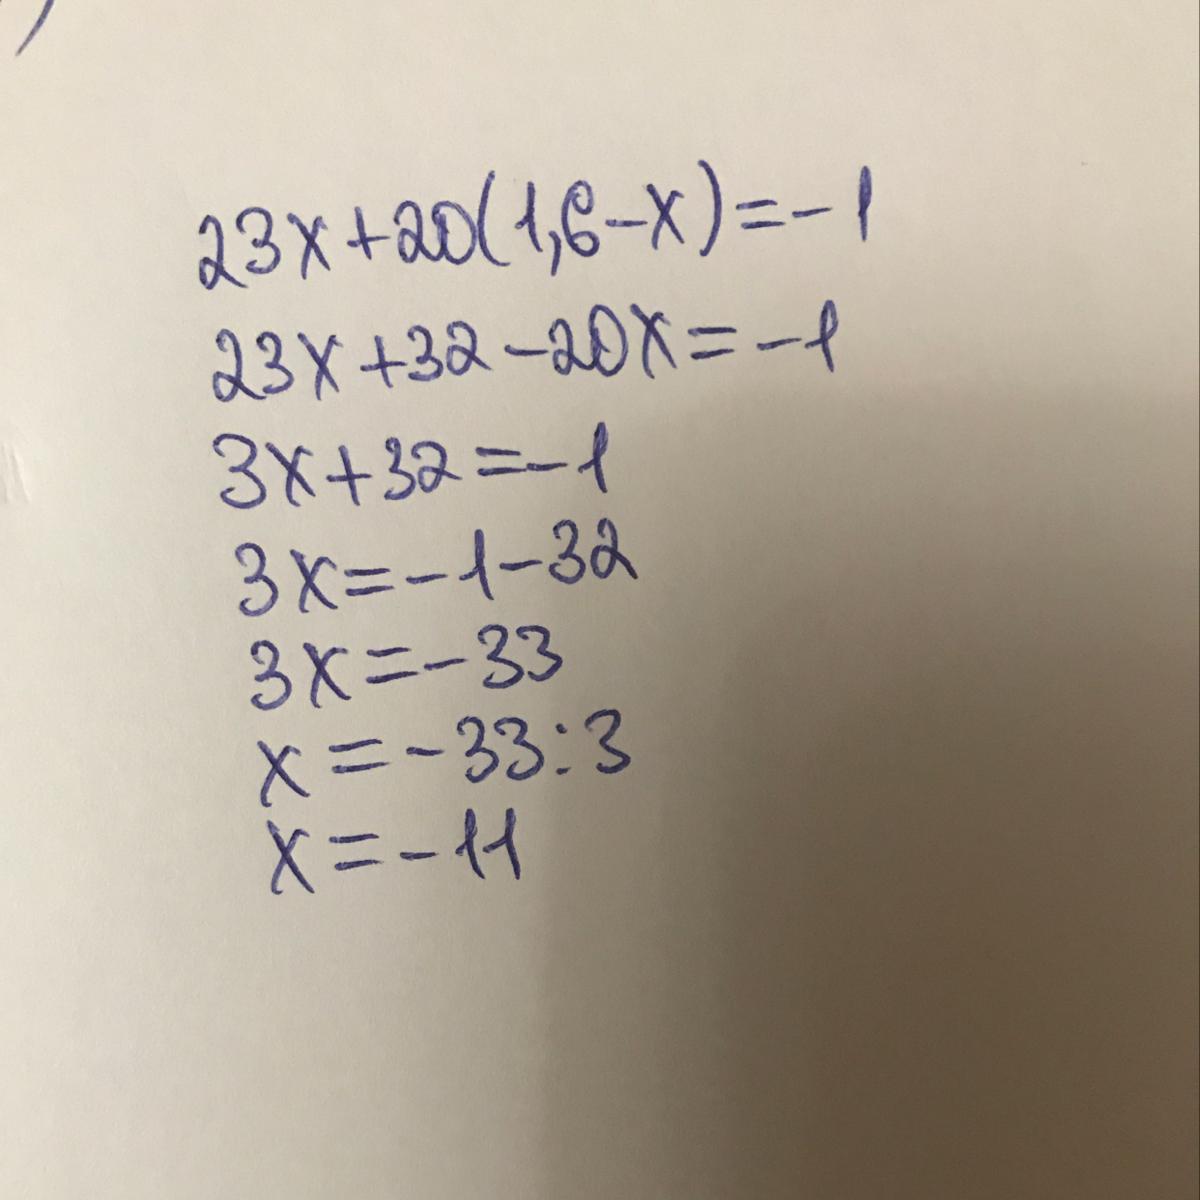 23x+20(1,6-x)=-1
23x+32-20x=-1
3x+32=-1
3x=-1-32
3x=-33
x=-33:3
x=-11